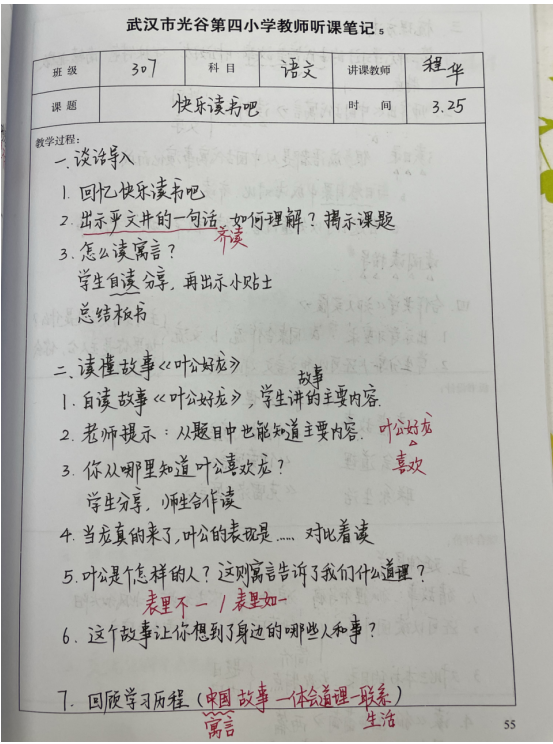 武汉市光谷第四小学教师听课笔记 5
班级 307 科目 语文 讲课教师 程华
课题 快乐读书吧 时间 3.25
教学过程:
一、谈话导入
1. 回忆快乐读书吧
2. 出示严文井的一句话,如何理解?揭示课题
齐读
3. 怎么读寓言?
学生自读分享,再出示小贴士
总结板书
二、读懂故事《叶公好龙》
故事
1. 自读故事《叶公好龙》,学生讲的主要内容.
2. 老师提示:从题目中也能知道主要内容. 叶公好龙
喜欢
3. 你从哪里知道叶公喜欢龙?
学生分享,师生合作读
4. 当龙真的来了,叶公的表现是…… 对比着读
5. 叶公是个怎样的人?这则寓言告诉了我们什么道理?
表里不一 / 表里如一
6. 这个故事让你想到了身边的哪些人和事?
7. 回顾学习历程(中国 故事 —体会道理—联系)
寓言 生活
55